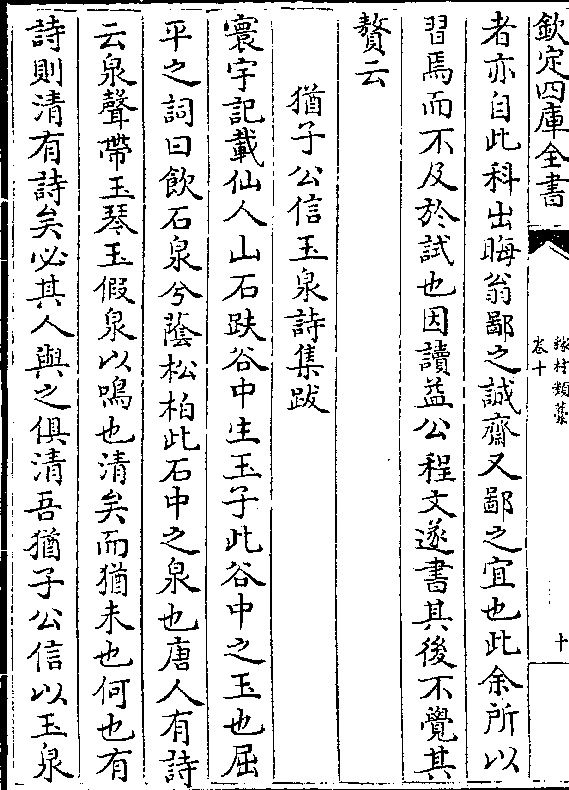 欽定四庫全書
稼村類藁
卷十
十
者亦自此科出晦翁鄙之誠齋又鄙之宜也此余所以
習焉而不及於試也因讀益公程文遂書其後不覺其
贅云
猶子公信玉泉詩集跋
寰宇記載仙人山石趺谷中生玉子此谷中之玉也屈
平之詞曰飲石泉兮蔭松柏此石中之泉也唐人有詩
云泉聲帶玉琴玉假泉以鳴也清矣而猶未也何也有
詩則清有詩矣必其人與之俱清吾猶子公信以玉泉